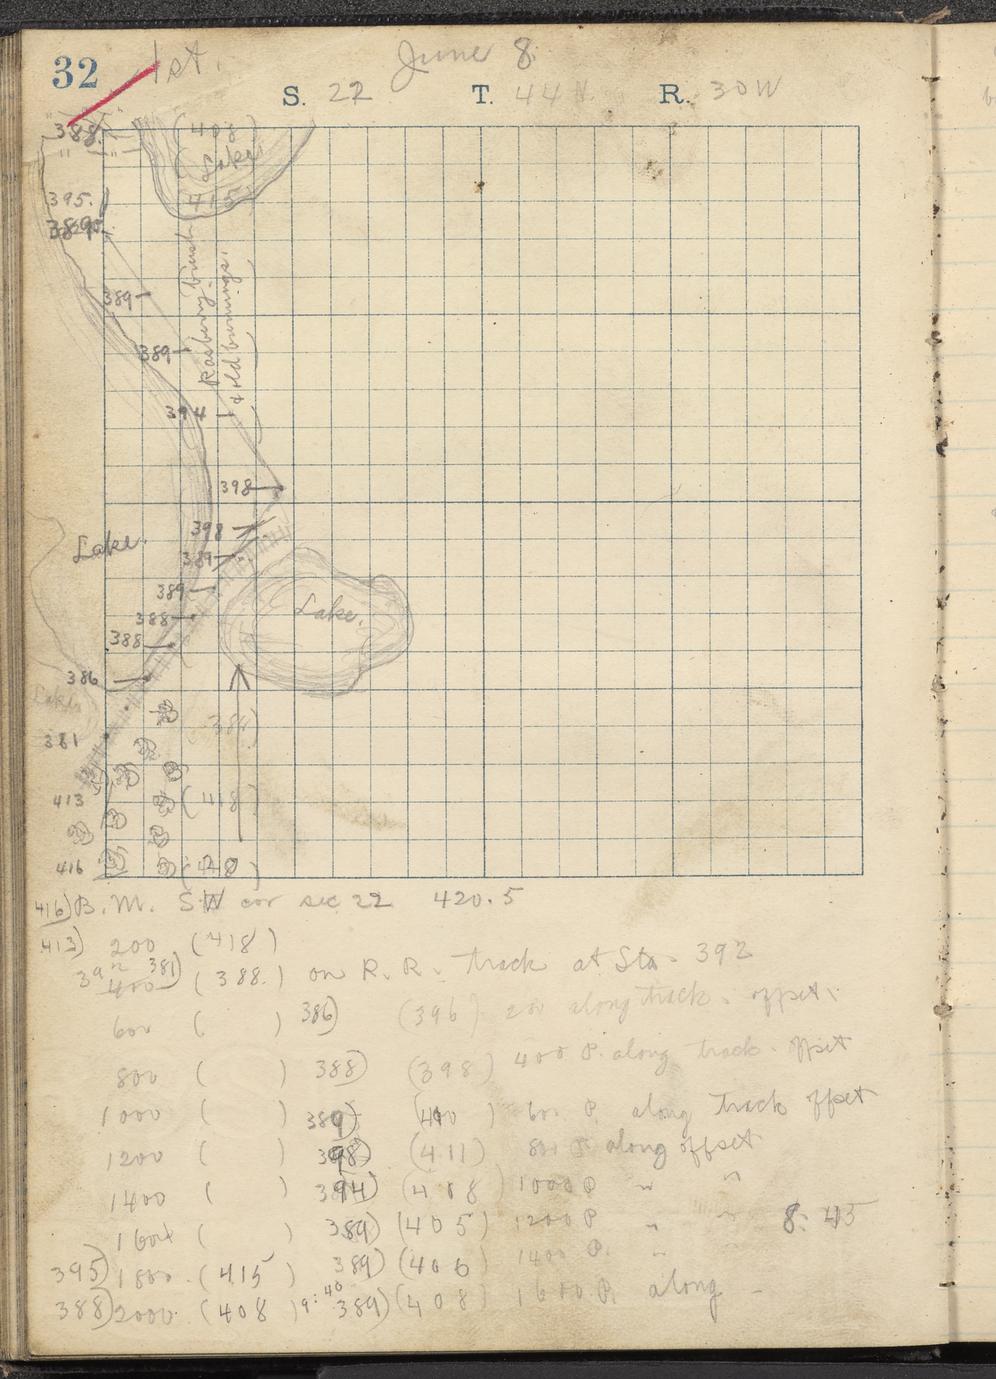 32 1st. June 8.
S. 22 T. 44 N. R. 30W
388. (408)
" "
Lake
395. 415
389
Rasberry brush
& old burnings.
389
389
394
398
398
Lake.
389
389
Lake.
388
388
386
Lake
(384)
381
413 (418)
416
416) B. M. SW cor sec 22 420.5
413) 200 (418)
381) 400 (388.) on R. R. track at Sta. 392
600 ( ) 386) (396) 200 along track. offset.
800 ( ) 388) (398) 400 P. along track. offset
1000 ( ) 389) (400) 600 P. along track offset
1200 ( ) 398) (411) 800 P along offset
1400 ( ) 394) (408) 1000 P " "
1600 ( ) 389) (405) 1200 P " " 8:45
395) 1800. (415) 389) (406) 1400 P. "
388) 2000. (408) 9:40 389) (408) 1600 P. along